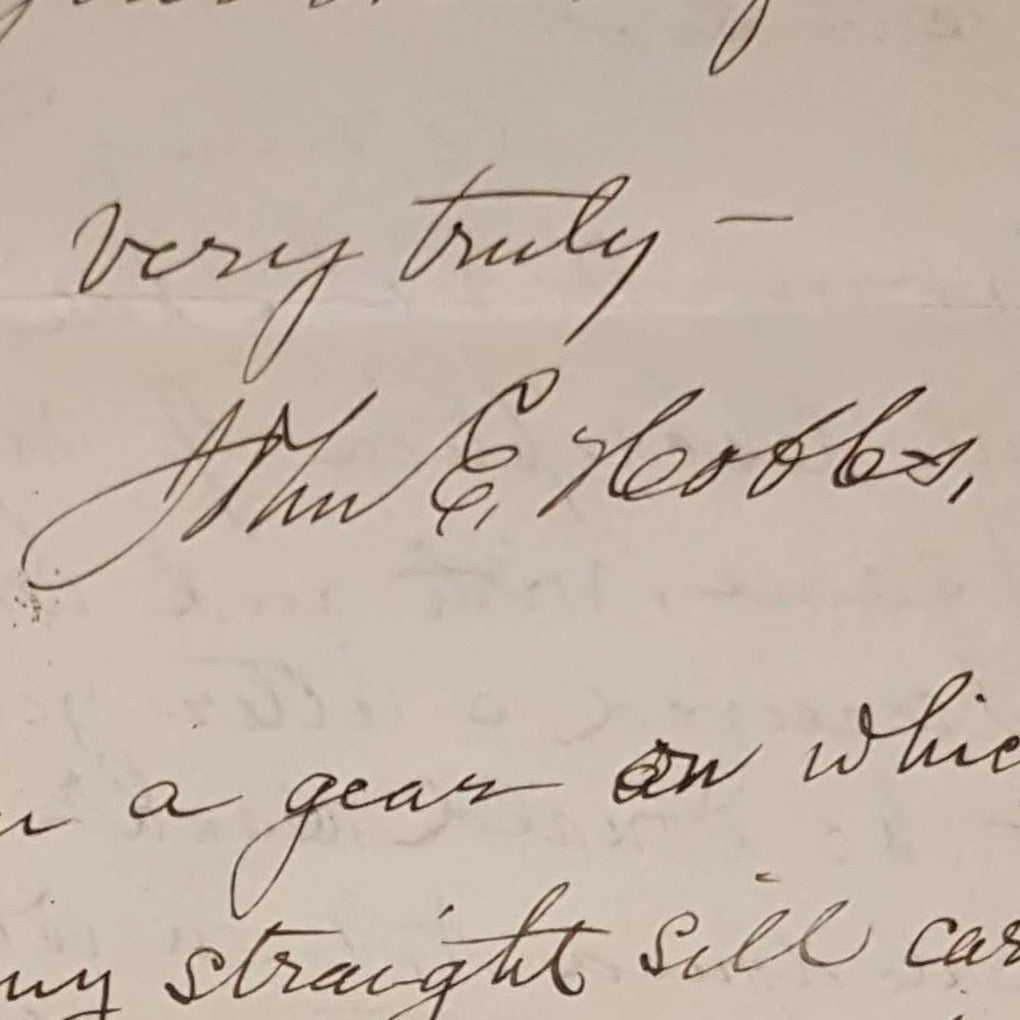 very truly —
John E, Hobbs,
a gear on whic
my straight sill car